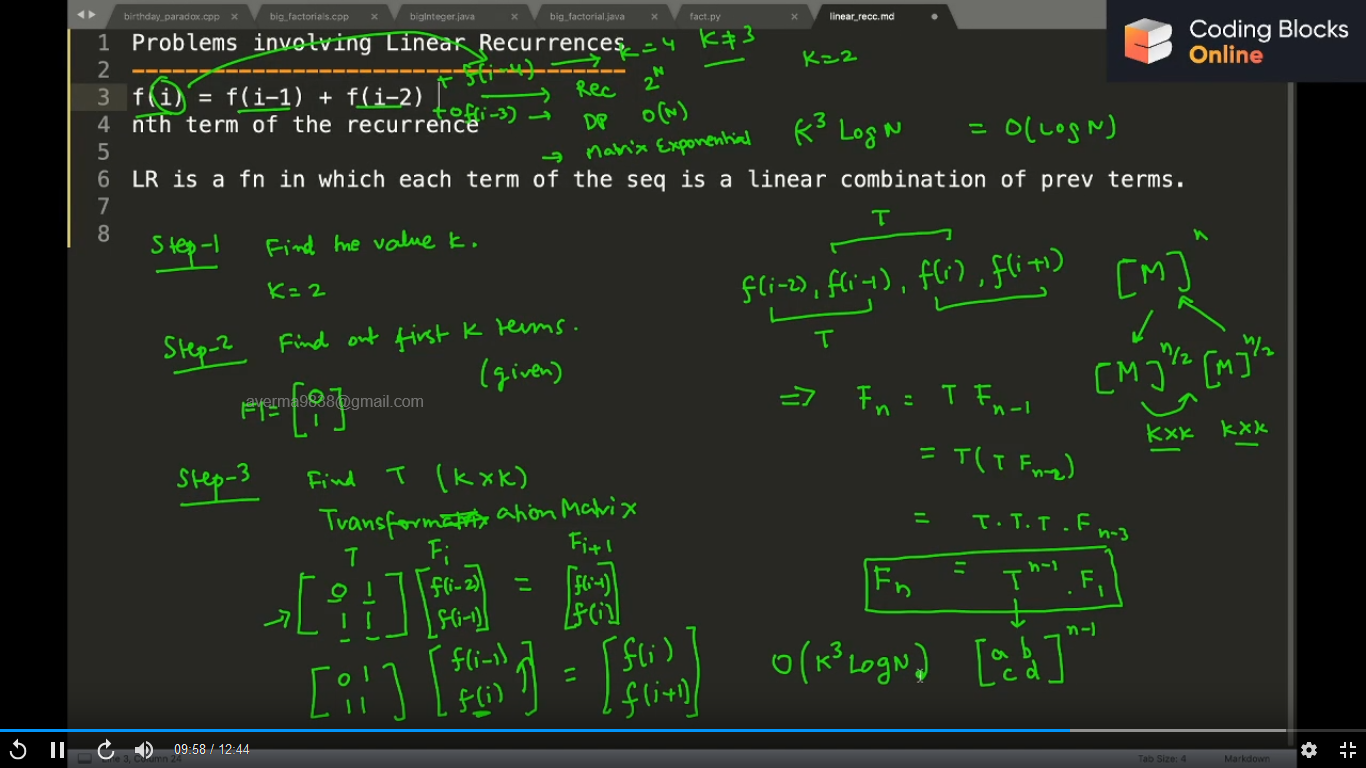 birthday_paradox.cpp
big_factorials.cpp
bigInteger.java
big_factorial.java
fact.py
linear_recc.md
Coding Blocks
Online
1 Problems involving Linear Recurrences
2 ------------------------------------
3 f(i) = f(i-1) + f(i-2)
4 nth term of the recurrence
5
6 LR is a fn in which each term of the seq is a linear combination of prev terms.
7
8
+ f(i-4) → K=4 K≠3
K=2
→ Rec 2^N
+ 0f(i-3) → DP O(N)
→ Matrix Exponential K³ Log N = O(Log N)
Step-1 Find the value K.
K=2
Step-2 Find out first K terms.
(given)
F1= [0 1]
averma9838@gmail.com
Step-3 Find T (K×K)
Transformation Matrix
T F_i F_i+1
→ [0 1 1 1] [f(i-2) f(i-1)] = [f(i-1) f(i)]
[0 1 1 1] [f(i-1) f(i)] = [f(i) f(i+1)]
T
f(i-2), f(i-1), f(i), f(i+1)
T
[M]^n
[M]^n/2 [M]^n/2
K×K K×K
⇒ F_n = T F_n-1
= T(T F_n-2)
= T.T.T.F_n-3
F_n = T^n-1 . F_1
O(K³ Log N) [a b c d]^n-1
09:58 / 12:44
Line 3, Column 24
Tab Size: 4
Markdown